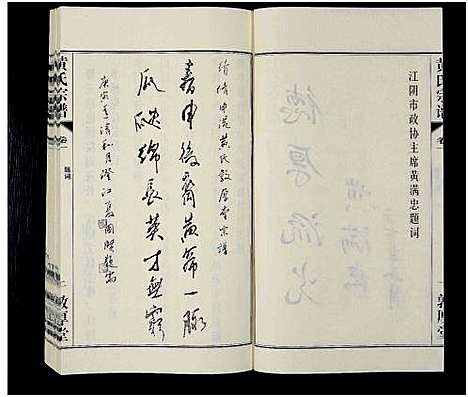 黄氏宗谱
卷一
敦厚堂
江阴市政协主席黄满忠题词
德厚流光
黄满忠
续修申港黄氏敦厚堂宗谱
春申後裔黄第一脉
瓜瓞绵长英才無穷
庚寅年清和月澄江
黄氏宗谱
卷一
题词
敦厚堂